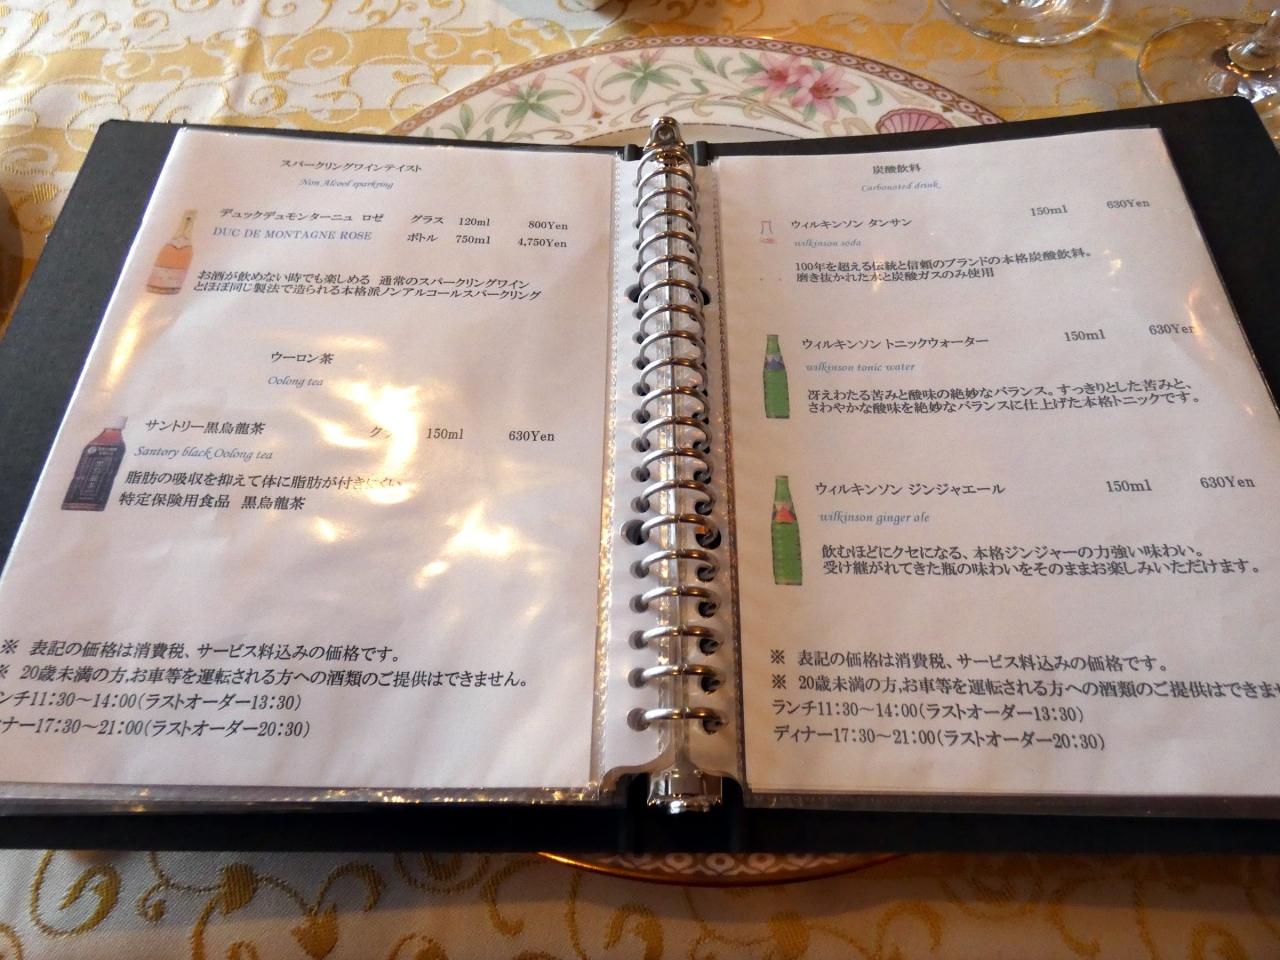 スパークリングワインテイスト
Non Alcool sparkring
デュックデュモンターニュ ロゼ グラス 120ml 800Yen
DUC DE MONTAGNE ROSE ボトル 750ml 4,750Yen
お酒が飲めない時でも楽しめる 通常のスパークリングワイン
とほぼ同じ製法で造られる本格派ノンアルコールスパークリング
ウーロン茶
Oolong tea
サントリー黒烏龍茶 150ml 630Yen
Santory black Oolong tea
脂肪の吸収を抑えて体に脂肪が付きにくい
特定保険用食品 黒烏龍茶
※ 表記の価格は消費税、サービス料込みの価格です。
※ 20歳未満の方,お車等を運転される方への酒類のご提供はできません。
ンチ11:30～14:00(ラストオーダー13:30)
ナー17:30～21:00(ラストオーダー20:30)
炭酸飲料
Carbonated drink
ウィルキンソン タンサン 150ml 630Yen
wilkinson soda
100年を超える伝統と信頼のブランドの本格炭酸飲料。
磨き抜かれた水と炭酸ガスのみ使用
ウィルキンソン トニックウォーター 150ml 630Yen
wilkinson tonic water
冴えわたる苦みと酸味の絶妙なバランス。すっきりとした苦みと、
さわやかな酸味を絶妙なバランスに仕上げた本格トニックです。
ウィルキンソン ジンジャエール 150ml 630Yen
wilkinson ginger ale
飲むほどにクセになる、本格ジンジャーの力強い味わい。
受け継がれてきた瓶の味わいをそのままお楽しみいただけます。
※ 表記の価格は消費税、サービス料込みの価格です。
※ 20歳未満の方,お車等を運転される方への酒類のご提供はできませ
ランチ11:30～14:00(ラストオーダー13:30)
ディナー17:30～21:00(ラストオーダー20:30)